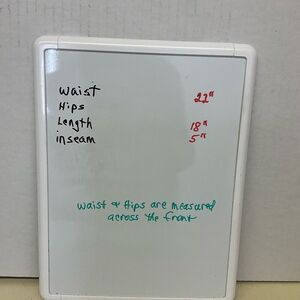 Waist 22"
Hips
Length 18"
inseam 5"
Waist & Hips are measured
across the front